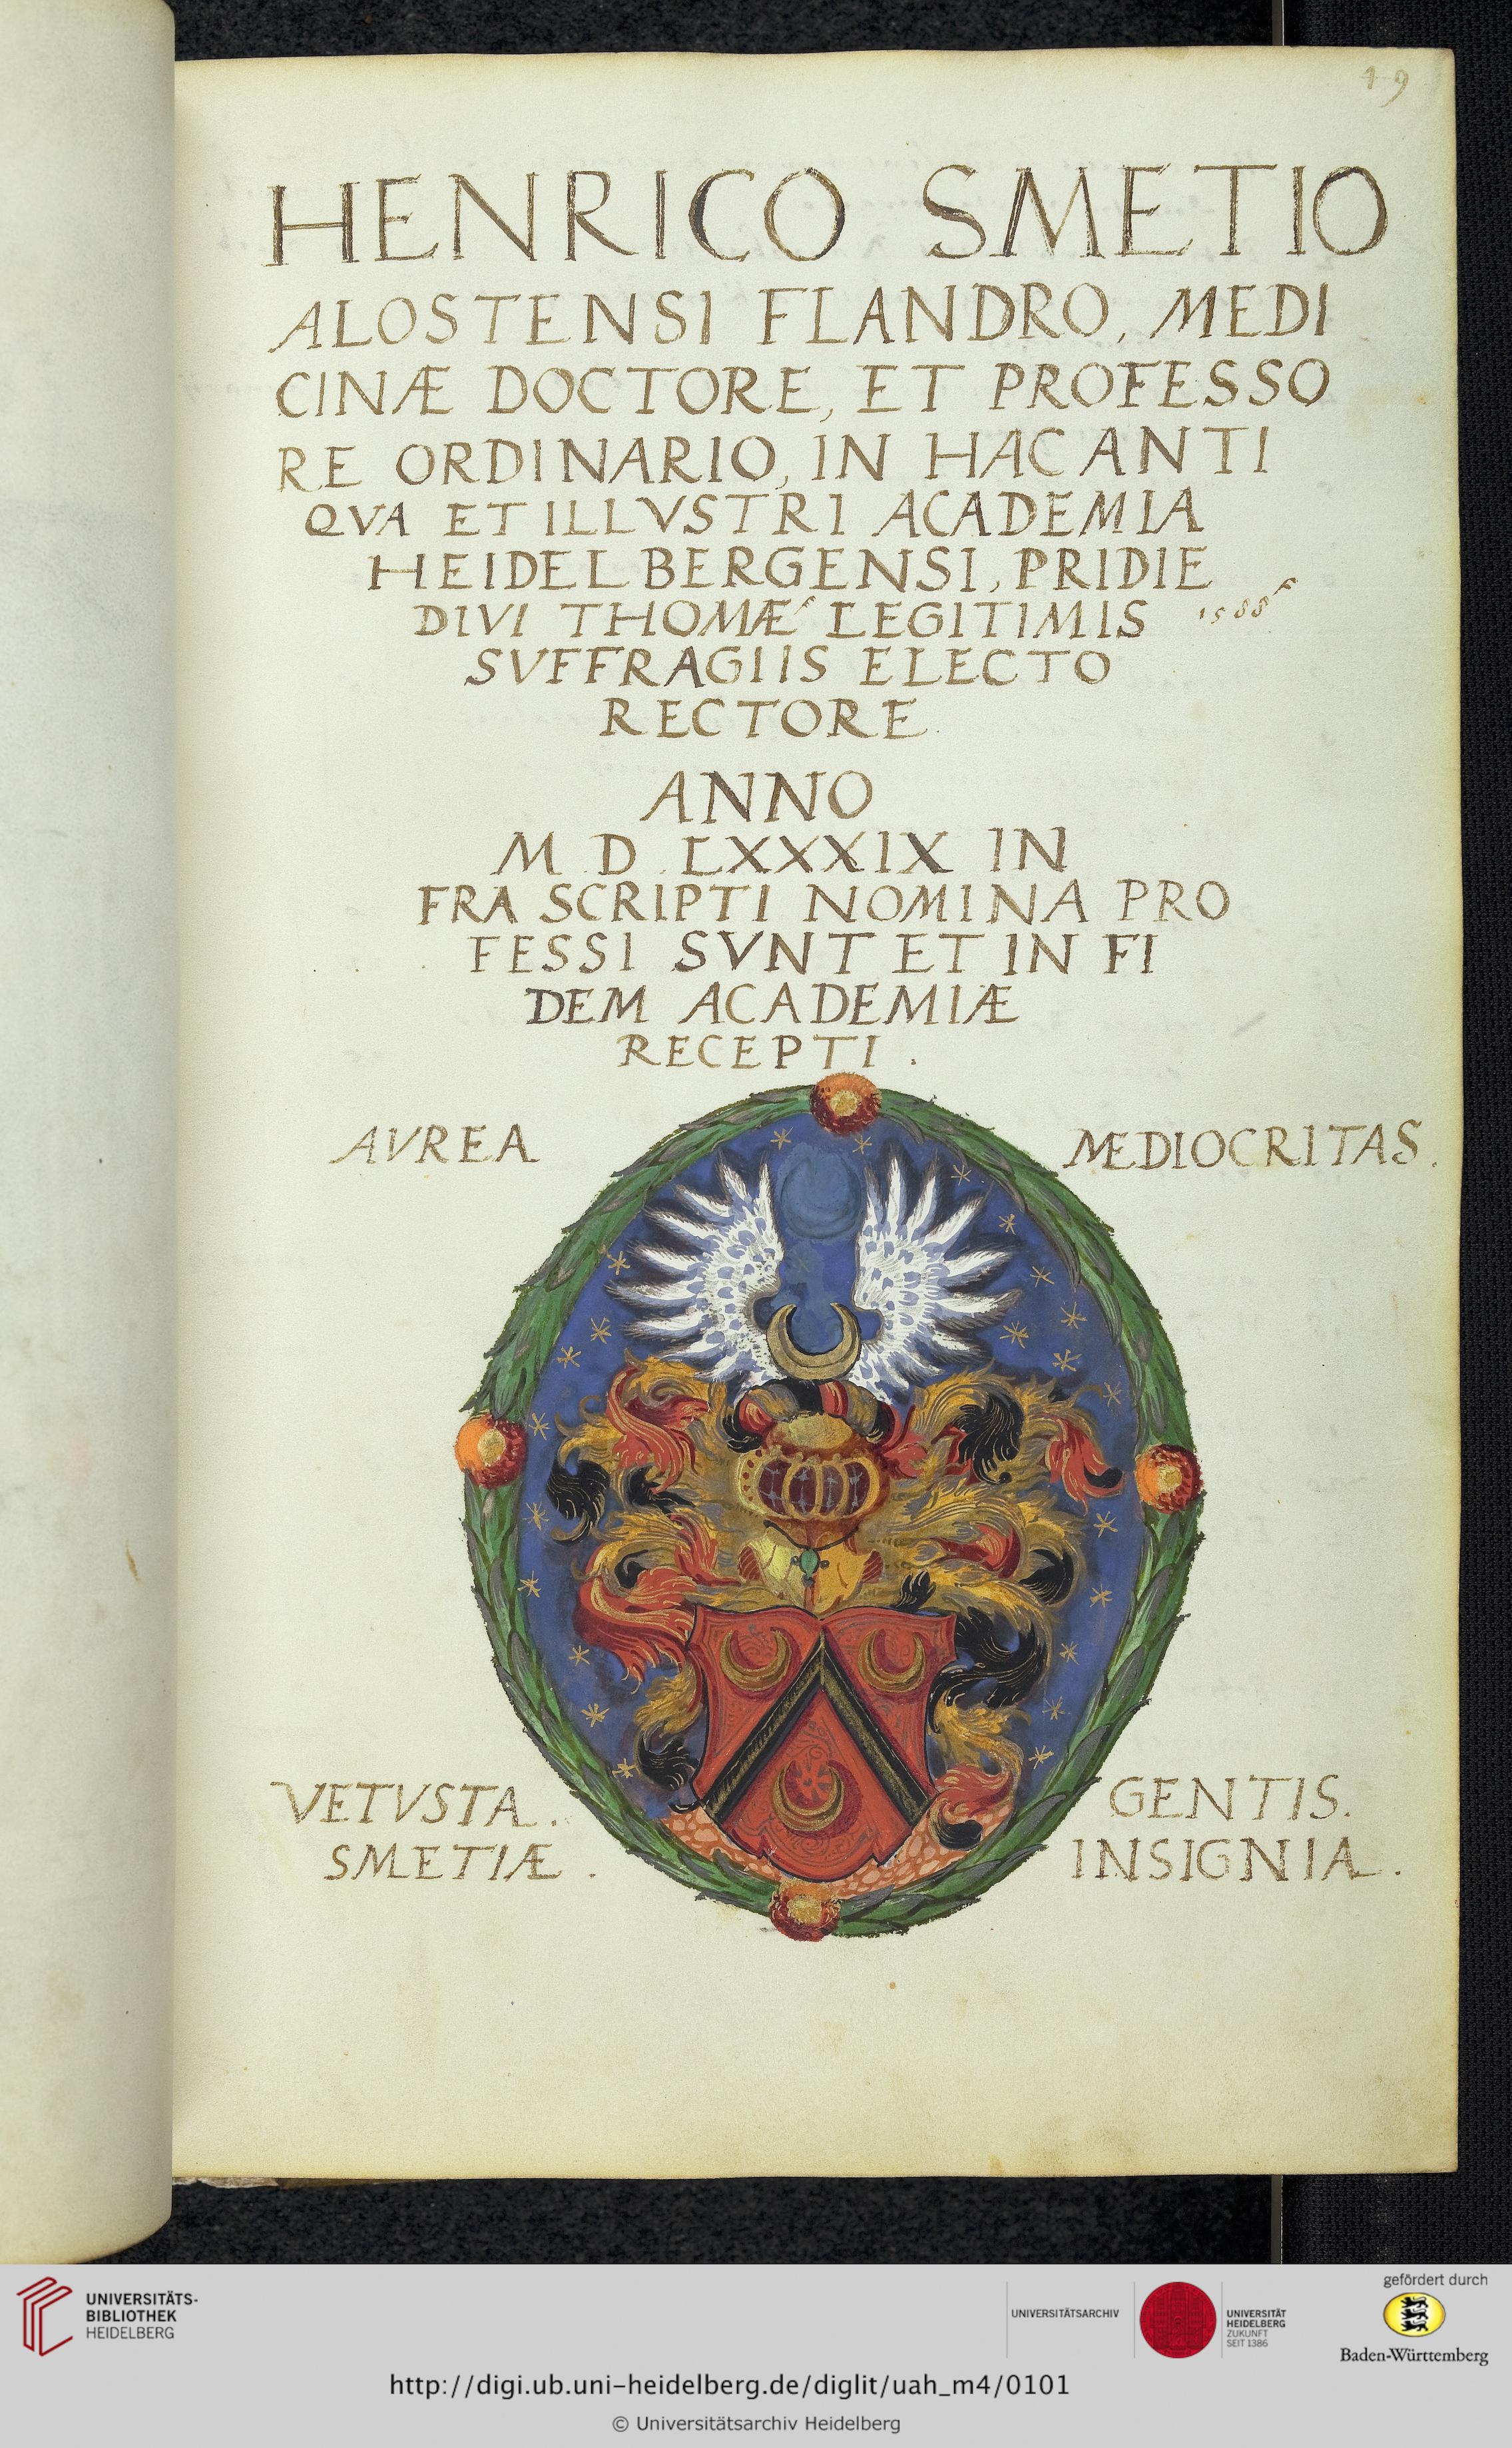 19
HENRICO SMETIO
ALOSTENSI FLANDRO, MEDI
CINÆ DOCTORE, ET PROFESSO
RE ORDINARIO, IN HAC ANTI
QVA ET ILLVSTRI ACADEMIA
HEIDELBERGENSI, PRIDIE
DIVI THOMÆ LEGITIMIS 1588
SVFFRAGIIS ELECTO
RECTORE
ANNO
M D LXXXIX IN
FRA SCRIPTI NOMINA PRO
FESSI SVNT ET IN FI
DEM ACADEMIÆ
RECEPTI.
AVREA MEDIOCRITAS.
VETVSTA. GENTIS.
SMETIÆ. INSIGNIA.
UNIVERSITÄTS-
BIBLIOTHEK
HEIDELBERG
UNIVERSITÄTSARCHIV
UNIVERSITÄT
HEIDELBERG
ZUKUNFT
SEIT 1386
gefördert durch
Baden-Württemberg
http://digi.ub.uni-heidelberg.de/diglit/uah_m4/0101
© Universitätsarchiv Heidelberg